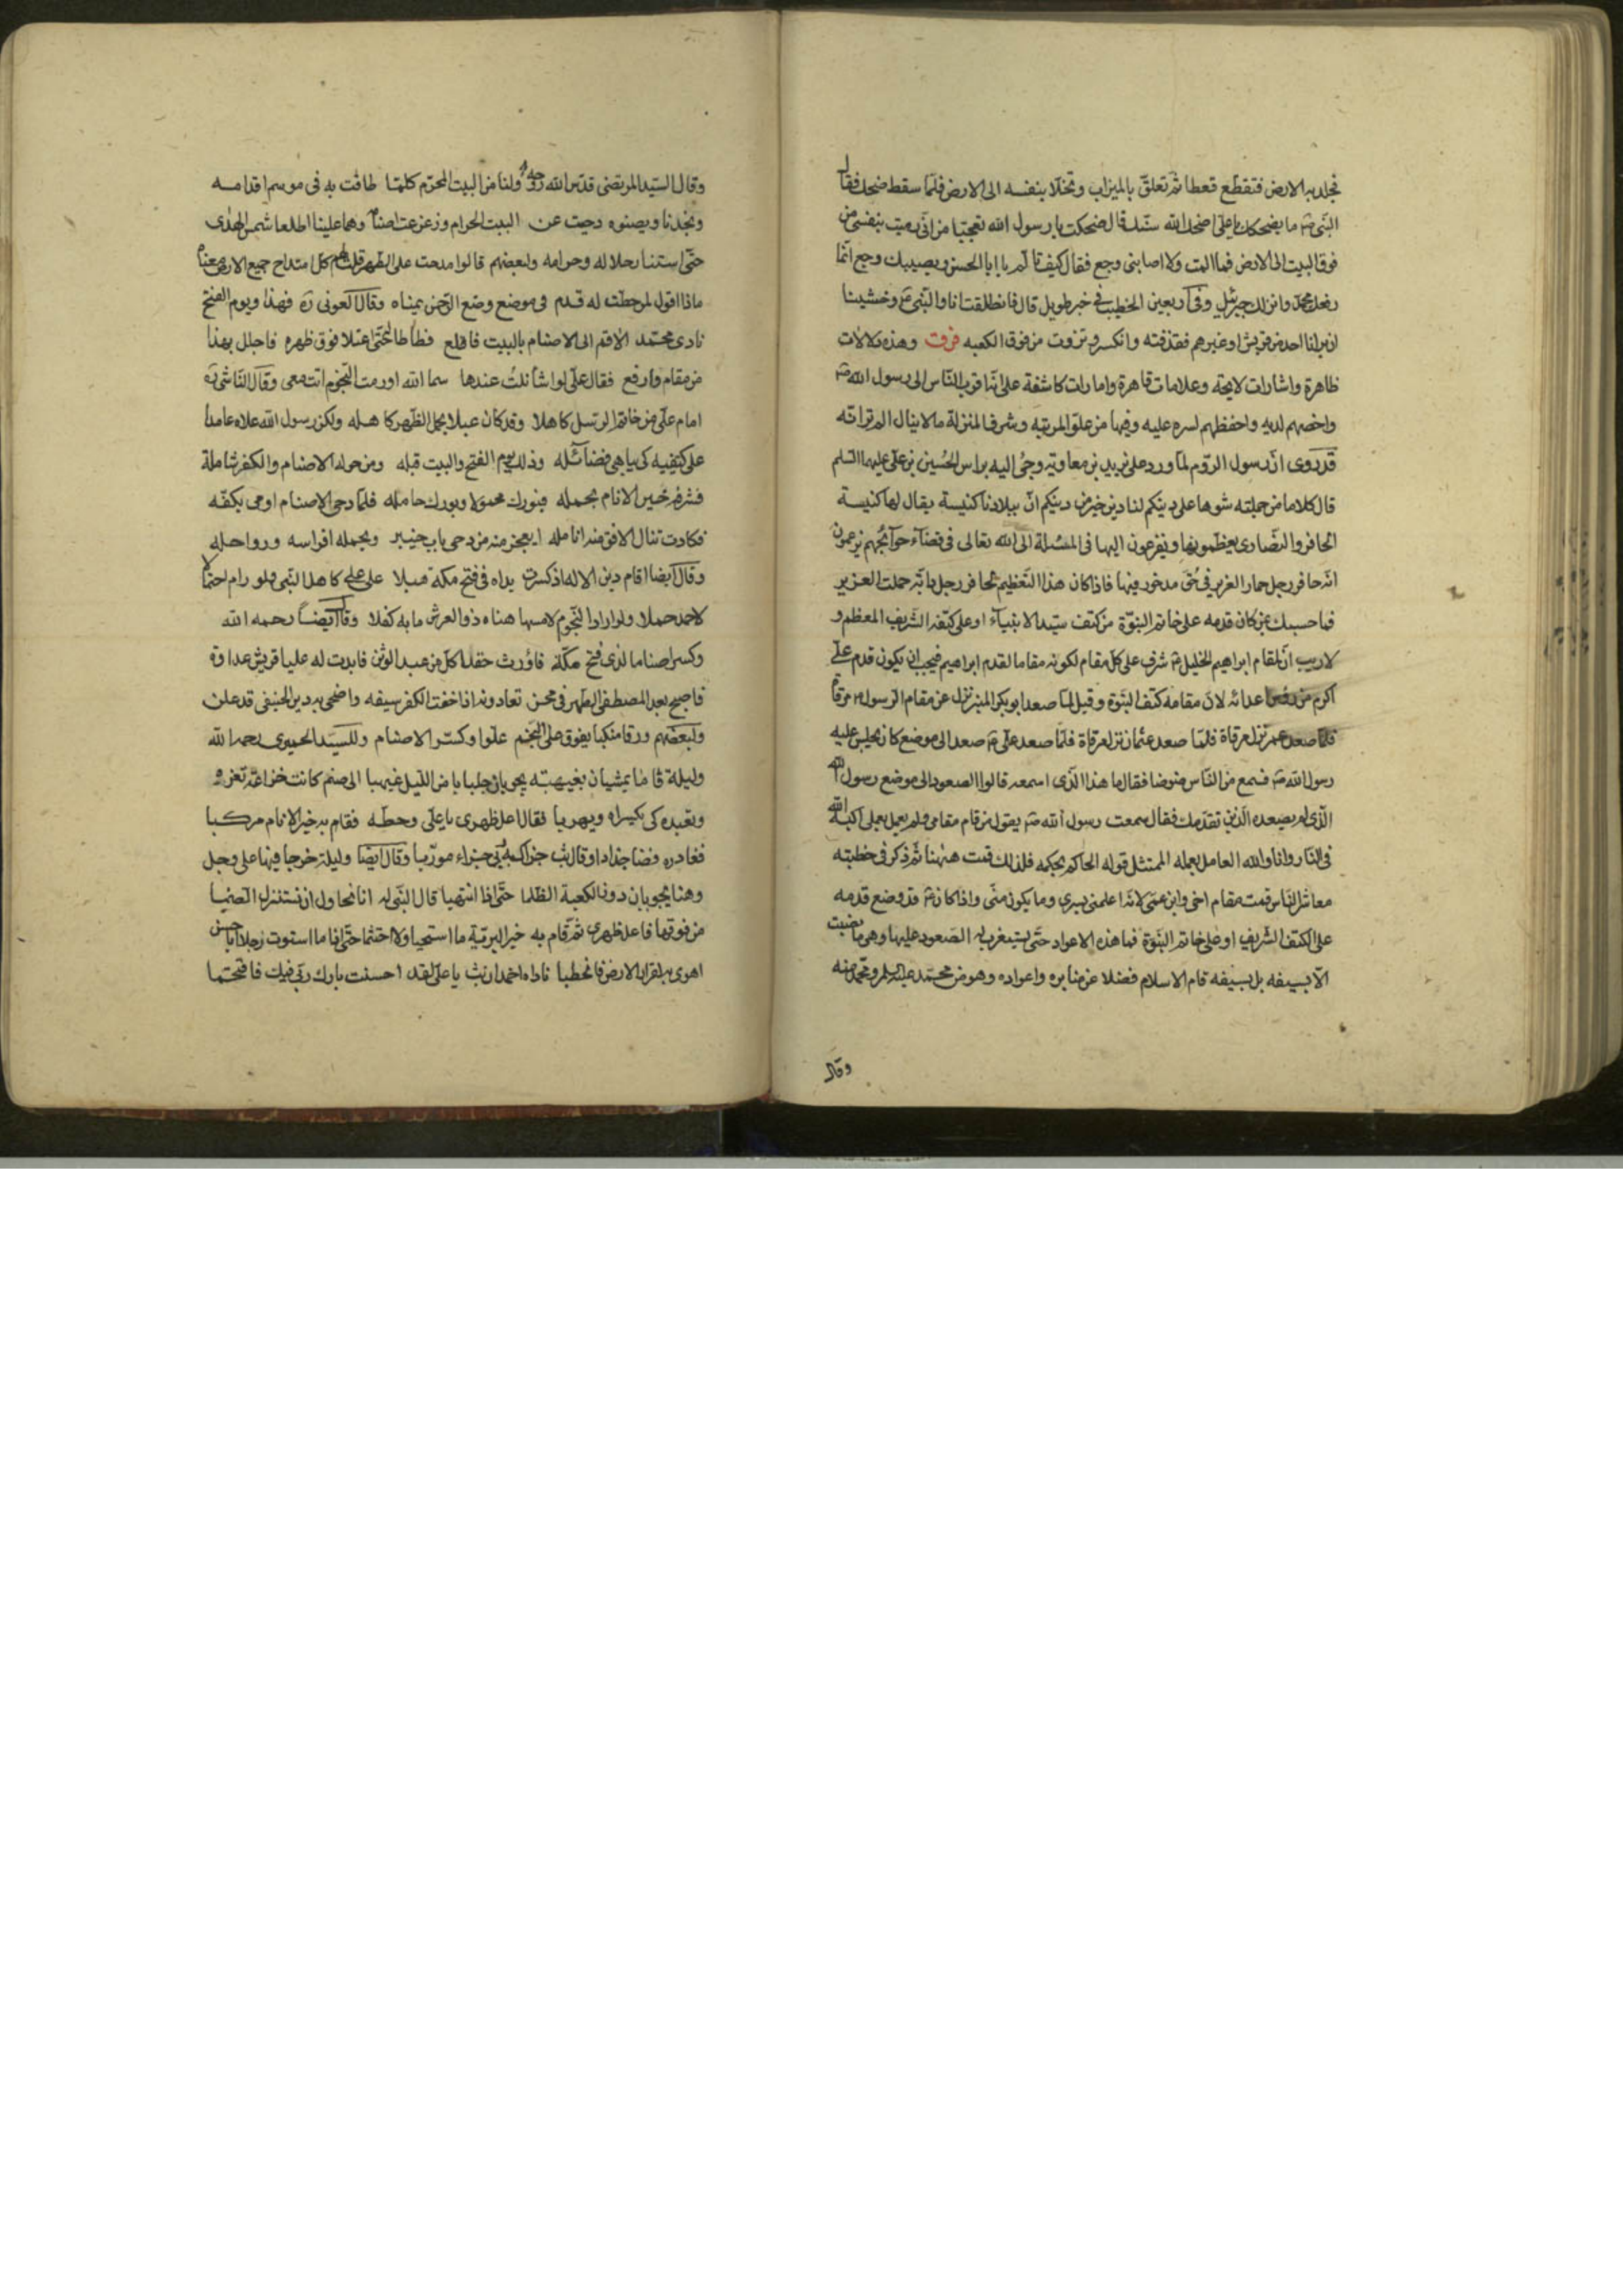 فجلد به الارض فتقطع قعطا ثم تعلق بالميزاب وتخلا بنفسه الى الارض فلما سقط ضحك فقال
النبي ص ما يضحكك يا على اضحك الله سنك قال ضحكت يا رسول الله تعجبا من انى رميت بنفسي من
فوق البيت الى الارض فما المت ولا اصابنى وجع فقال كيف تالم يا ابا الحسن ويصيبك وجع انما
رفعك محمد وانزلك جبرئيل وفى اربعين الخطيب في خبر طويل قال فانطلقت انا والنبي ع وخشينا
ان يرانا احد من قريش او غيرهم فقذفته وانكسر ونزوت من فوق الكعبه فرقت وهذه دلالات
ظاهرة واشارات لايحة وعلامات قاهرة وامارات كاشفة على انه اقرب الناس الى رسول الله ص
واخصهم لديه واحفظهم لسره عليه وفيها من علو المرتبة وشرف المنزلة ما لا ينال الم تر انه
قد روى ان رسول الروم لما ورد على يزيد بن معاوية وجئ اليه براس الحسين بن على عليهما السلم
قال كلاما من جملته شوها على دينكم لنا دين خير من دينكم ان ببلادنا كنيسة يقال لها كنيسة
الحافر والنصارى يعظمونها ويفزعون اليها فى المسئلة الى الله تعالى فى قضآء حوآئجهم يزعمون
انه حافر رجل حمار العزير في حق مدخور فيها فاذا كان هذا التعظيم لحافر رجل دابة حملت العزير
فما حسبك بمن كان قدمه على خاتم النبوة من كتف سيد الانبيآء او على كتفه الشريف المعظم و
لا ريب ان لمقام ابراهيم الخليل ع شرف على كل مقام لكونه مقاما لقدم ابراهيم فيجب ان يكون قدم على
اكرم من رؤس اعدائه لان مقامه كتف النبوة وقيل لما صعد ابو بكر المنبر نزل عن مقام الرسول ص مرقاة
فلما صعد عمر نزل مرقاة فلما صعد عثمان نزل مرقاة فلما صعد على ع صعد الى موضع كان يجلس عليه
رسول الله ص فسمع من الناس ضوضا فقال ما هذا الذى اسمعه قالوا الصعود الى موضع رسول الله
الذى لم يصعده الذين تقدمك فقال سمعت رسول الله ص يقول من قام مقامى ولم يعمل بعملى اكبه الله
فى النار وانا والله العامل بعمله الممتثل قوله الحاكم بحكمه فلذلك قمت هنهنا ثم ذكر فى خطبته
معاشر الناس قمت مقام اخى وابن عمى لانه اعلمنى بسرى وما يكون منى واذا كان ع قد وضع قدمه
على الكتف الشريف او على خاتم النبوة فما هذه الاعواد حتى يستغرب له الصعود عليها وهى ما نصبت
الا بسيفه بل بسيفه قام الاسلام فضلا عن منابره واعواده وهو من محمد عليه السلم ومحمد منه
وقال
وقال السيد المرتضى قدس الله روحه ولنا من البيت المحرم كلما طافت به فى موسم اقدامه
وبجدنا وبصنوه دحيت عن البيت الحرام وزعزعت اصنامه وهما علينا اطلعا شمس الهدى
حتى استنار حلاله وحرامه ولبعضهم قالوا مدحت على الطهر قلت لهم كل امتداح جميع الارض معناه
ماذا اقول لمن حطت له قدم فى موضع وضع الرحمن يمناه وقال العونى ره فهذا ويوم الفتح
نادى محمد الا قم الى الاصنام بالبيت فاقلع فطاطا حتى اعتلا فوق ظهره فاجلل بهذا
من مقام وارفع فقال على لو اشأ نلت عندها سما الله او رمت النجوم اتت معى وقال الناشى ره
امام على من خاتم الرسل كاهلا وقد كان عبلا يحمل الظهر كاهله ولكن رسول الله علاه عامدا
على كتفيه كى يباهى فضائله وذلك يوم الفتح والبيت قبله ومن حوله الاصنام والكفر شاملة
فشرفه خير الانام بحمله فبورك محمولا وبورك حامله فلما دحى الاصنام اومى بكفه
فكادت تنال الافق منه انامله ايعجز منه من دحى باب خيبر ويحمله افراسه ورواحله
وقال ايضا اقام دين الاله اذ كسرت يداه فى فتح مكة هبلا على على كاهل النبي ولو رام احتمالا
لاحمد حملا ولو اراد النجوم لامسها هناه ذو العرش ما به كفلا وقال ايضا رحمه الله
وكسر اصناما لذى فتح مكة فاورث حقدا كل من عبد الوثن فابدت له عليا قريش عداوة
فاصبح بعد المصطفى الطهر فى محن تعادونه اذ اخفت الكفر سيفه واضحى به دين الحنيفى قد علن
ولبعضهم ورقا منكبا يفوق على النجم علوا وكسر الاصنام وللسيد الحميرى رحمه الله
وليلة قاما يمشيان بغيهبة يجوبان جلبابا من الليل غيهبا الى صنم كانت خزاعة تعزو
وتعبده كى يكسراه ويهربا فقال اعل ظهرى يا على وحطه فقام به خير الانام مركبا
فغادره فضا جذاذا وقال ثب وقال ايضا وليلة خرجا فيها على وجل
وهنا يجوبان دون الكعبة الظلما حتى اذا انتهيا قال النبى له انا نحاول ان نستنزل الصنما
من فوقها فاعل ظهرى ثم قام به خير البرية ما استحيا ولا احتشما حتى اذا ما استوت رجلا ابا حسن
اهوى به لقرار الارض فانحطما ناداه احمد ان ثب يا على لقد احسنت بارك ربى فيك فاقتحما